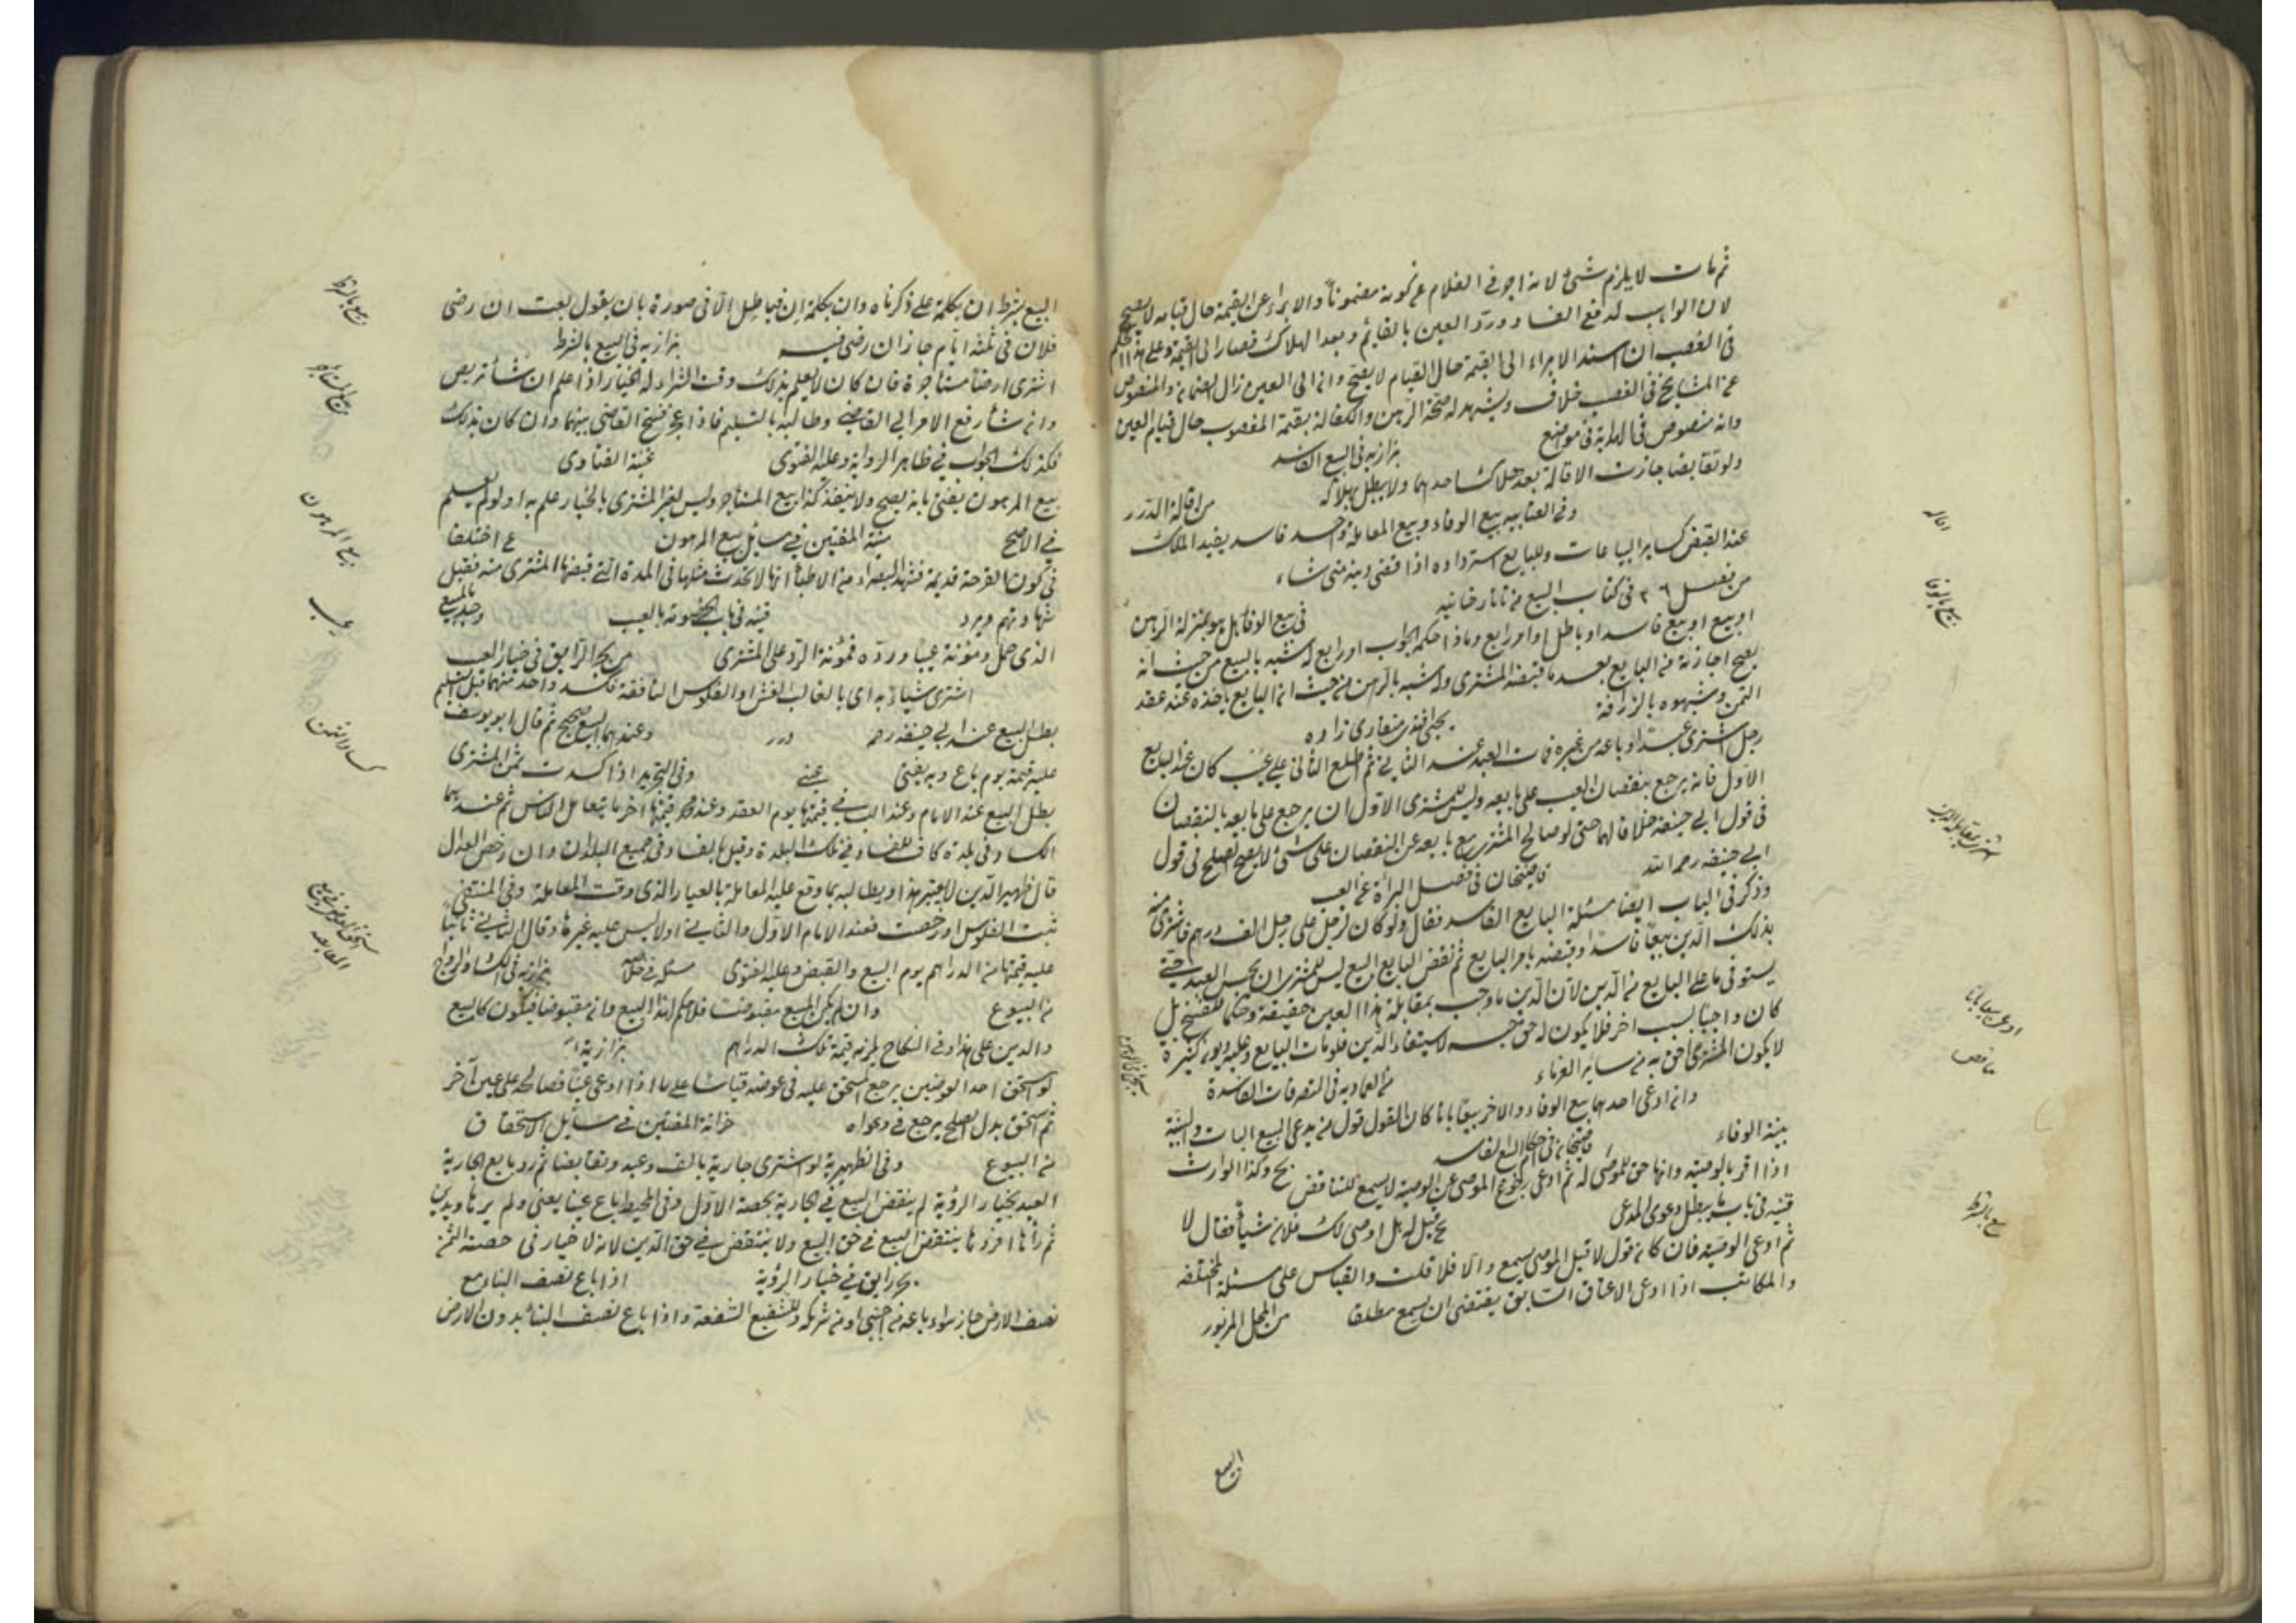 ثم مات لا يلزم شئ لانه اجر في الغلام عن كونه مضمونا والابراء عن القيمة حال قيامه لا يصح
لان الواجب لدفع الفساد ورد العين بالقائم وبعد الهلاك فصار الى القيمة وعلى هذا الحكم
في الغصب ان اسند الابراء الى القيمة حال القيام لا يصح وان الى العين زال الضمان والمنصوص
عن المشايخ في الغصب خلاف ويشهد له صحة الرهن والكفالة بقيمة المغصوب حال قيام العين
وانه منصوص في الهداية في مواضع بزازيه في البيع الفاسد
ولو تقابضا جازت الاقالة بعد هلاك احدهما ولا يبطل بهلاكه من اقالة الدرر
وفي العتابيه بيع الوفاء وبيع المعاملة واحد فاسد يفيد الملك
عند القبض كسائر البياعات وللبايع استرداده اذا قضى دينه متى شاء
من فصل ٢٦ في كتاب البيع من تاتارخانيه في بيع الوفا هل هو بمنزلة الرهن
او بيع او بيع فاسد او باطل او امر رابع وماذا حكمه الجواب امر رابع له شبه بالبيع من حيث انه
يصح اجازته من البايع بعد ما قبضه المشترى وله شبه بالرهن من حيث ان البايع ياخذه عند نقد
الثمن وشبهوه بالزرافة يحيى افندى منقارى زاده
رجل اشترى عبدا وباعه من غيره فمات العبد عند الثاني ثم اطلع الثاني على عيب كان عند البايع
الاول فانه يرجع بنقصان العيب على بايعه وليس للمشترى الاول ان يرجع على بايعه بالنقصان
في قول ابي حنيفة خلافا لهما حتى لو صالح المشترى مع بايعه عن النقصان على شئ لا يصح الصلح في قول
ابي حنيفه رحمه الله قاضيخان في فصل البرأة عن العيب
وذكر في الباب ايضا مسئلة البايع الفاسد فقال ولو كان لرجل على رجل الف درهم فاشترى منه
بذلك الدين بيعا فاسدا وقبضه بامر البايع ثم نقض البايع البيع ليس للمشترى ان يحبس العبد حتى
يستوفى ما على البايع من الدين لان الدين ما وجب بمقابلة هذا العين حقيقة وحكما للفسخ بل
كان واجبا بسبب اخر فلا يكون له حق حبسه لاستيفاء الدين فلو مات البايع وعليه ديون كثيرة
لا يكون المشترى احق به من سائر الغرماء من العماديه في التصرفات الفاسدة
وان ادعى احدهما بيع الوفاء والاخر بيعا باتا كان القول قول من يدعى البيع البات والبينة
بينة الوفاء قاضيخان في احكام البيع الفاسد
اذا اقر بالوصية وانها حق للموصى له ثم ادعى رجوع الموصى عن الوصية لا يسمع للتناقض بخ وكذا الوارث
قنيه في باب ما يبطل دعوى المدعى بخ قيل له هل اوصى لك فلان شيأ فقال لا
ثم ادعى الوصية فان كان قول لا قبل الموصى يسمع والا فلا قلت والقياس على مسئلة المختلفه
والمكاتب اذا ادعى الاعتاق السابق يقتضى ان يسمع مطلقا من المحل المزبور
البيع
اقاله
بيع بالوفا
بيع بالشرط
البيع بشرط ان بكلمة على ذكرناه وان بكلمة ان فباطل الا في صورة بان يقول بعت ان رضى
فلان في ثلثة ايام جاز ان رضى فيه بزازيه في البيع بالشرط
اشترى ارضا مستأجرة فان كان لا يعلم بذلك وقت الشراء له الخيار اذا علم ان شأ تربص
وان شأ رفع الامر الى القاضى وطالبه بالتسليم فاذا عجز فسخ القاضى بينهما وان كان بذلك
فكذلك الجواب في ظاهر الرواية وعليه الفتوى غنية الفتاوى
بيع المرهون يفتى بانه يصح ولا ينفذ كذا بيع المستأجر وليس لغير المشترى بالخيار علم به او لم يعلم
في الاصح منية المفتين في مسائل بيع المرهون عن اختلفا
في كون القرحة قديمة فشهد البصراء من الاطبأ انها لا تحدث مثلها في المدة التي قبضها المشترى منه تقبل
شهادتهم ويرد قنيه في باب الخصومة بالعيب وجد بالمبيع
الذى حمل ومؤنة عيبا ورده فمؤنة الرد على المشترى من بحر الرائق في خيار العيب
اشترى شيأ به اى بالغالب الغش او الفلوس النافقة فكسد واحد منهما قبل التسليم
بطل البيع عند ابي حنيفه رحمه درر وعندهما البيع صحيح ثم قال ابو يوسف
عليه قيمة يوم باع وبه يفتى عينى وفي التجريد اذا كسدت ثمن المشترى
بطل البيع عند الامام وعند الثاني قيمتها يوم العقد وعند محمد قيمتها اخر ما يتعامل الناس ثم عندهما
الكساد في بلدة كاف للفساد في تلك البلدة وقيل بالفساد في جميع البلدان وان رخص العدال
قال ظهير الدين لا يعتبر هذا ويطالبه بما وقع عليه المعاملة بالعيار الذى وقت المعاملة وفي المنتقى
ثبت الفلوس او رخصت فعند الامام الاول والثاني اولا ليس عليه غيرها وقال الثاني ثانيا
عليه قيمتها من الدراهم يوم البيع والقبض وعليه الفتوى بزازيه في الكساد والرواج
من البيوع وان لم يكن المبيع مقبوضا فلا حكم لهذا البيع وان مقبوضا فيكون كالبيع
والدين على هذا وفي النكاح يلزمه قيمة تلك الدراهم بزازية
لو استحق احد العوضين يرجع المستحق عليه في عوضه قياسا على ما اذا ادعى عينا فصالحه على عين آخر
ثم استحق بدل الصلح يرجع في دعواه خزانة المفتين في مسائل الاستحقاق
من البيوع وفي الظهيرية لو اشترى جارية بالف وعبد وتقابضا ثم رد بايع الجارية
العبد بخيار الرؤية لم ينقض البيع في الجارية بحصة الاول وفي المحيط باع عينا يعنى ولم يرها وبدين
ثم رأها فردها ينتقض البيع في حق البيع ولا ينتقض في حق الدين لانه لا خيار في حصة الثمن
بحر رايق في خيار الرؤية اذا باع نصف البناء مع
نصف الارض جاز سواء باعه من اجنبى او من شريكه وللشفيع الشفعة واذا باع نصف البناء بدون الارض
بيع بالشرط
بيع المستاجر
بيع المرهون
عيب
كساد الثمن